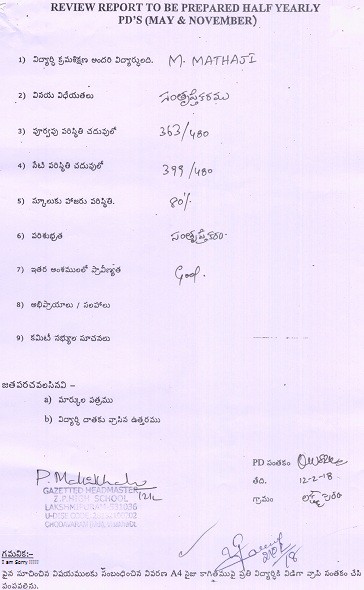 REVIEW REPORT TO BE PREPARED HALF YEARLY
PD'S (MAY & NOVEMBER)
1) విద్యార్థి క్రమశిక్షణ అందరి విద్యార్థులది. M. MATHAJI
2) వినయ విధేయతలు సంతృప్తికరము
3) పూర్వపు పరిస్థితి చదువులో 363/480
4) నేటి పరిస్థితి చదువులో 399/480
5) స్కూలుకు హాజరు పరిస్థితి. 80%
6) పరిశుభ్రత సంతృప్తికరం
7) ఇతర అంశములలో ప్రావీణ్యత Good.
8) అభిప్రాయాలు / సలహాలు
9) కమిటీ సభ్యుల సూచనలు
జతపరచవలసినవి –
a) మార్కుల పత్రము
b) విద్యార్థి దాతకు వ్రాసిన ఉత్తరము
PD సంతకం
GAZETTED HEADMASTER
Z.P.HIGH SCHOOL
తేది. 12-2-18
గ్రామం
గమనిక:–
I am Sorry !!!!!
పైన సూచించిన విషయములకు సంబంధించిన వివరణ A4 సైజు కాగితముపై ప్రతి విద్యార్థికి విడిగా వ్రాసి సంతకం చేసి
పంపవలెను.